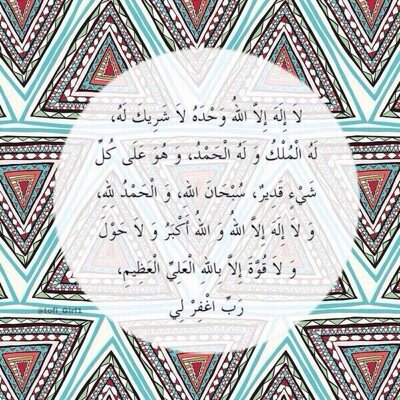 لَا إِلَهَ إِلاَّ اللهُ وَحْدَهُ لاَ شَرِيكَ لَهُ،
لَهُ الْمُلْكُ وَ لَهُ الْحَمْدُ، وَ هُوَ عَلَى كُلِّ
شَيْءٍ قَدِيرٌ، سُبْحَانَ اللهِ، وَ الْحَمْدُ للهِ،
وَ لاَ إِلَهَ إِلاَّ اللهُ وَ اللهُ أَكْبَرُ وَ لاَ حَوْلَ
وَ لاَ قُوَّةَ إِلاَّ بِاللهِ الْعَلِيِّ الْعَظِيمِ،
رَبِّ اغْفِرْ لِي